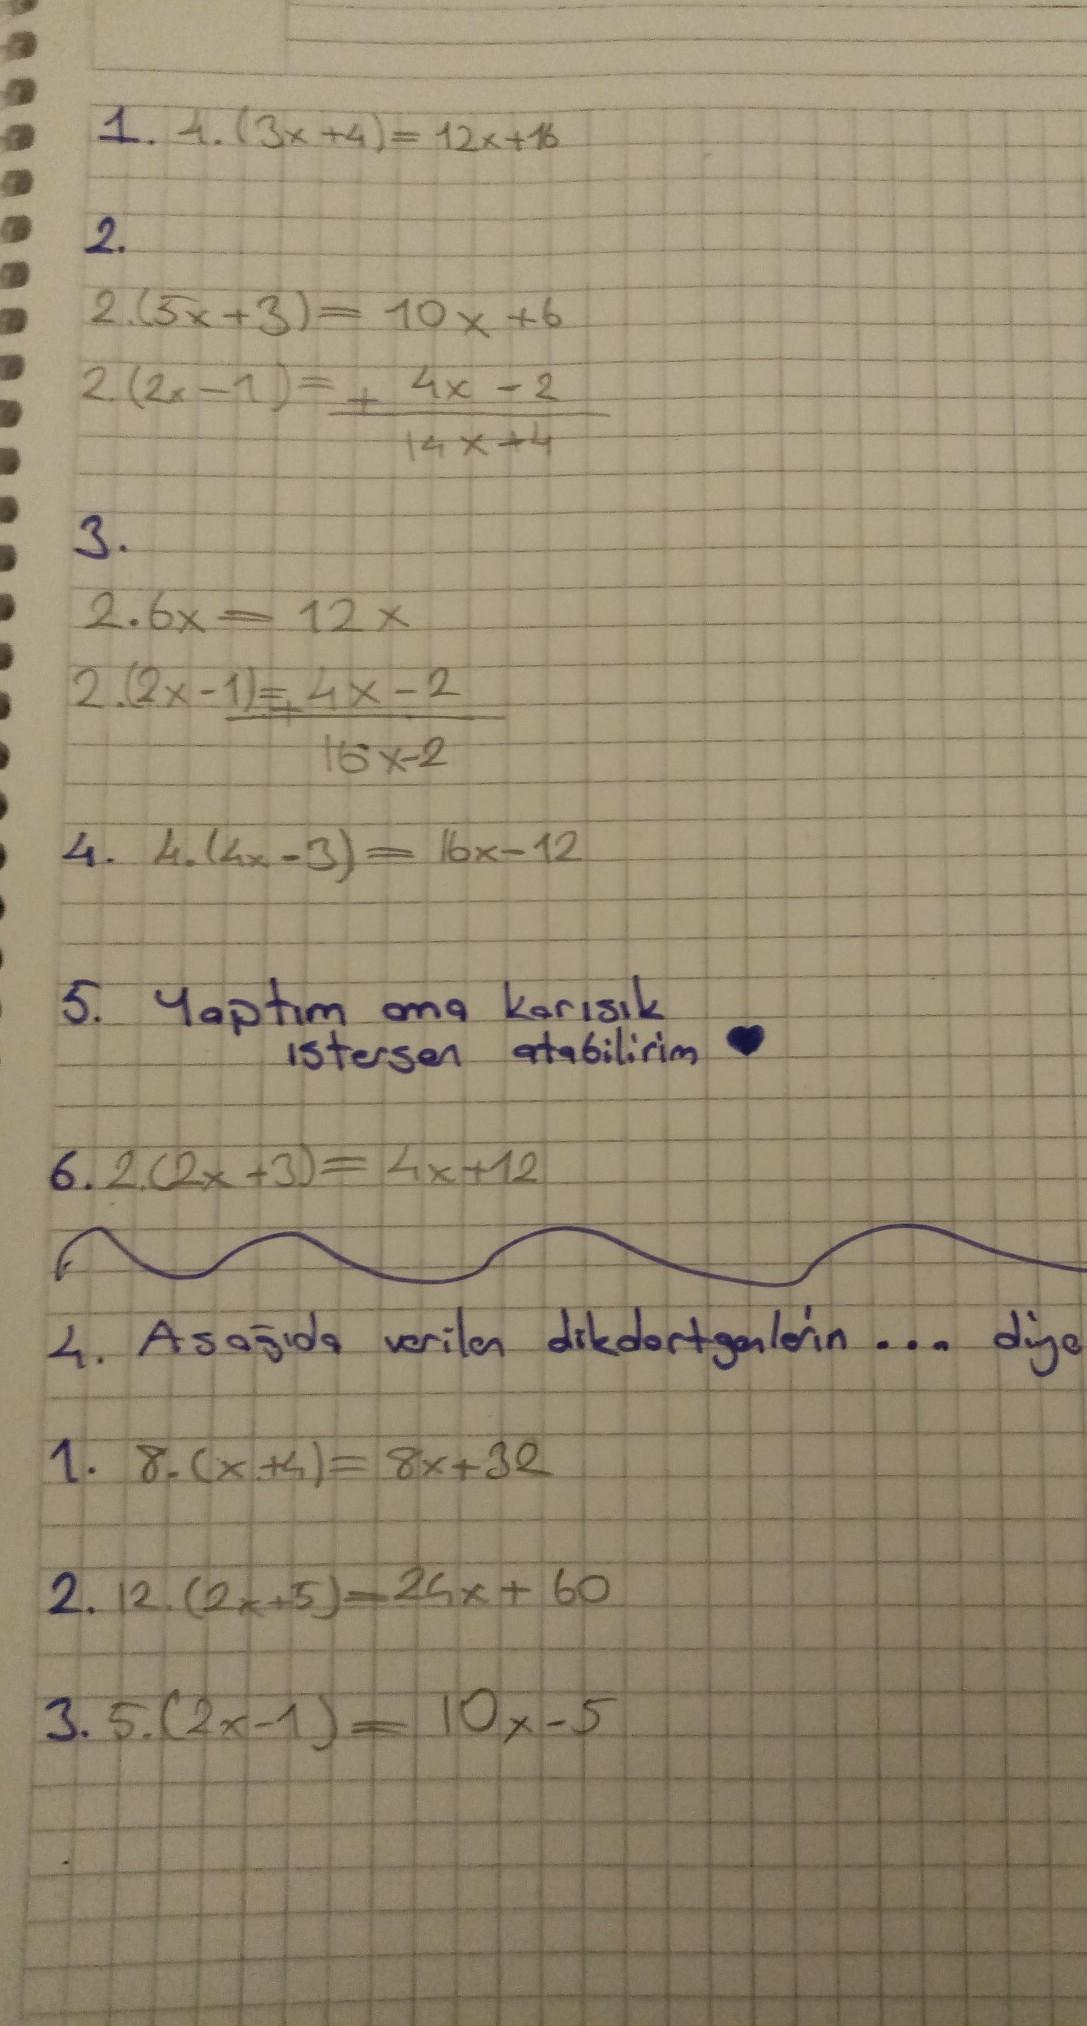 1. 4.(3x+4)=12x+16
2.
2.(5x+3)= 10x+6
2.(2x-1)= + 4x-2
14x+4
3.
2.6x= 12x
2.(2x-1)=+4x-2
16x-2
4. 4.(4x-3)= 16x-12
5. Yaptım ama karısık
istersen atabilirim ♥
6. 2.(2x+3)= 4x+12
4. Asağıda verilen dikdörtgenlerin ... diye
1. 8.(x+4)= 8x+32
2. 12.(2x+5)=24x+60
3. 5.(2x-1)= 10x-5